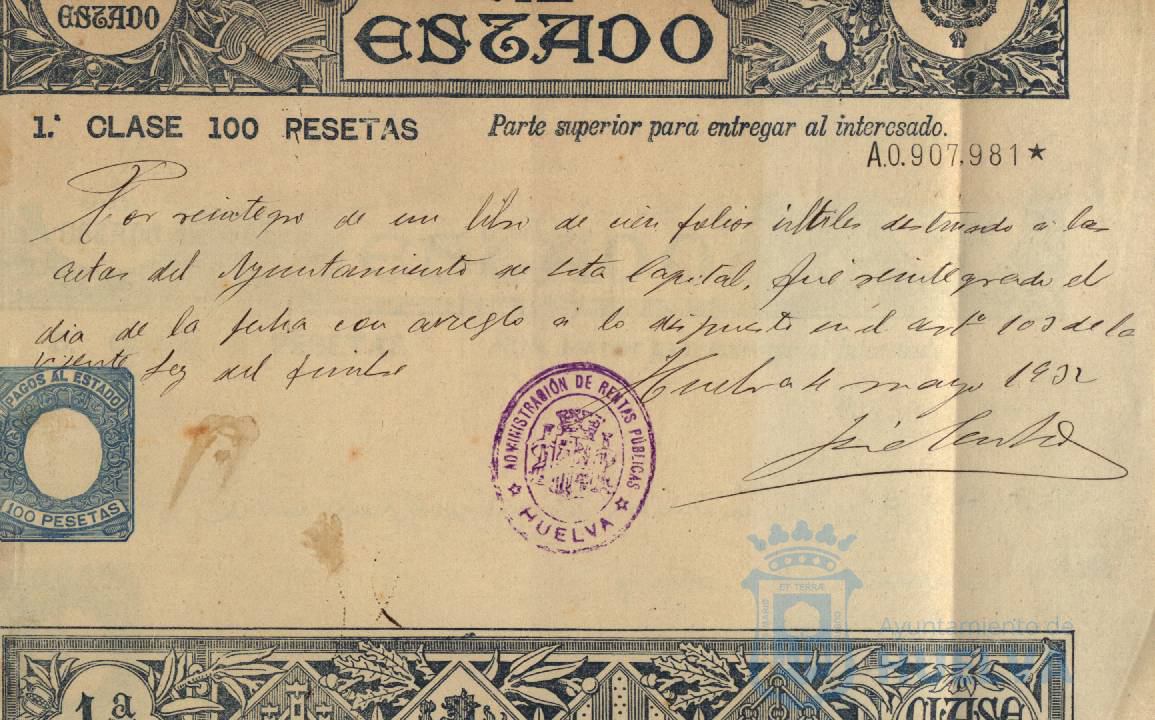 ESTADO
AL
ESTADO
1.ª CLASE 100 PESETAS
Parte superior para entregar al interesado.
A.0.907,981★
Por reintegro de un libro de cien folios útiles destinado a las
actas del Ayuntamiento de esta Capital, fué reintegrado el
dia de la fecha con arreglo a lo dispuesto en el artº 103 de la
vigente Ley del timbre
Huelva 4 mayo 1932
José
PAGOS AL ESTADO
100 PESETAS
ADMINISTRACIÓN DE RENTAS PÚBLICAS
HUELVA
ET TERRÆ
Ayuntamiento de
HUELVA
1ª
CLASE